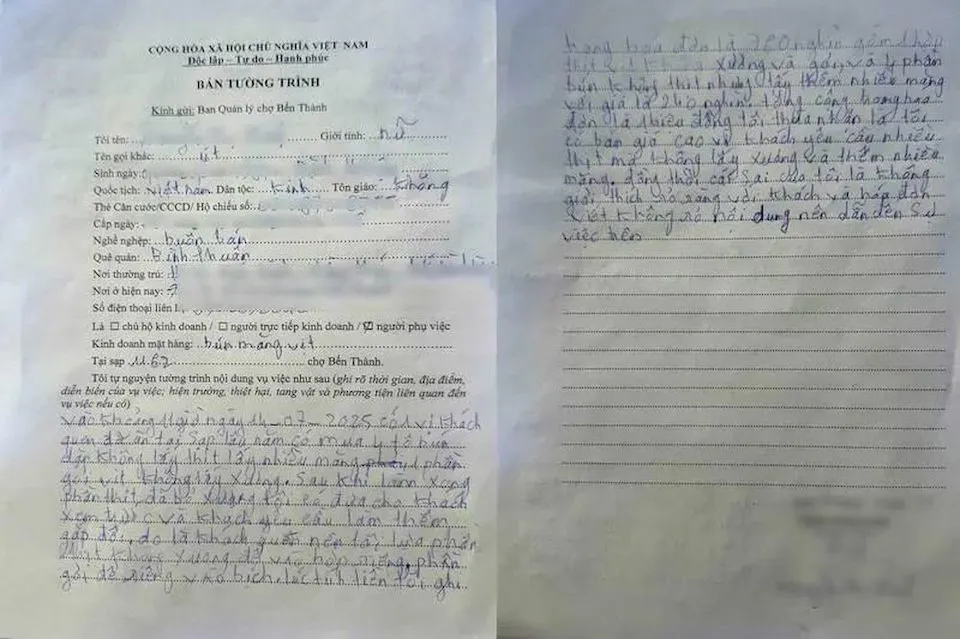 CỘNG HÒA XÃ HỘI CHỦ NGHĨA VIỆT NAM
Độc lập – Tự do – Hạnh phúc
BẢN TƯỜNG TRÌNH
Kính gửi: Ban Quản lý chợ Bến Thành
Tôi tên: Giới tính: nữ
Tên gọi khác:
Sinh ngày:
Quốc tịch: Việt nam Dân tộc: Kinh Tôn giáo: không
Thẻ Căn cước/CCCD/ Hộ chiếu số:
Cấp ngày:
Nghề nghiệp: buôn bán
Quê quán: Bình thuận
Nơi thường trú:
Nơi ở hiện nay:
Số điện thoại liên
Là ☐ chủ hộ kinh doanh / ☐ người trực tiếp kinh doanh / ☑ người phụ việc
Kinh doanh mặt hàng: bún măng vịt
Tại sạp 1167 chợ Bến Thành.
Tôi tự nguyện tường trình nội dung vụ việc như sau (ghi rõ thời gian, địa điểm,
diễn biến của vụ việc; hiện trường, thiệt hại, tang vật và phương tiện liên quan đến
vụ việc nếu có)
vào khoảng 11 giờ ngày 14-07-2025 có 1 vị khách
quen đã ăn tại sạp lâu năm có mua 4 tô bún
không lấy thịt lấy nhiều măng 1 phần
gỏi vịt không lấy xương. Sau khi làm xong
phần thịt đã bỏ xương tôi có đưa cho khách
xem trước và khách yêu cầu làm thêm
gấp đôi, do là khách quen nên tôi lựa phần
thịt không xương để vào hộp riêng, phần
gỏi để riêng vào bịch, lúc tính tiền tôi ghi
trong hoá đơn là 760 nghìn gồm 1 hộp
thịt vịt không xương và gỏi, và 4 phần
bún không thịt nhưng lấy thêm nhiều măng
với giá là 240 nghìn. tổng cộng trong hoá
đơn là 1 triệu đồng tôi thừa nhận là tôi
có bán giá cao vì khách yêu cầu nhiều
thịt mà không lấy xương và thêm nhiều
măng, đồng thời cái sai của tôi là không
giải thích rõ ràng với khách và hoá đơn
viết không rõ nội dung nên dẫn đến sự
việc trên